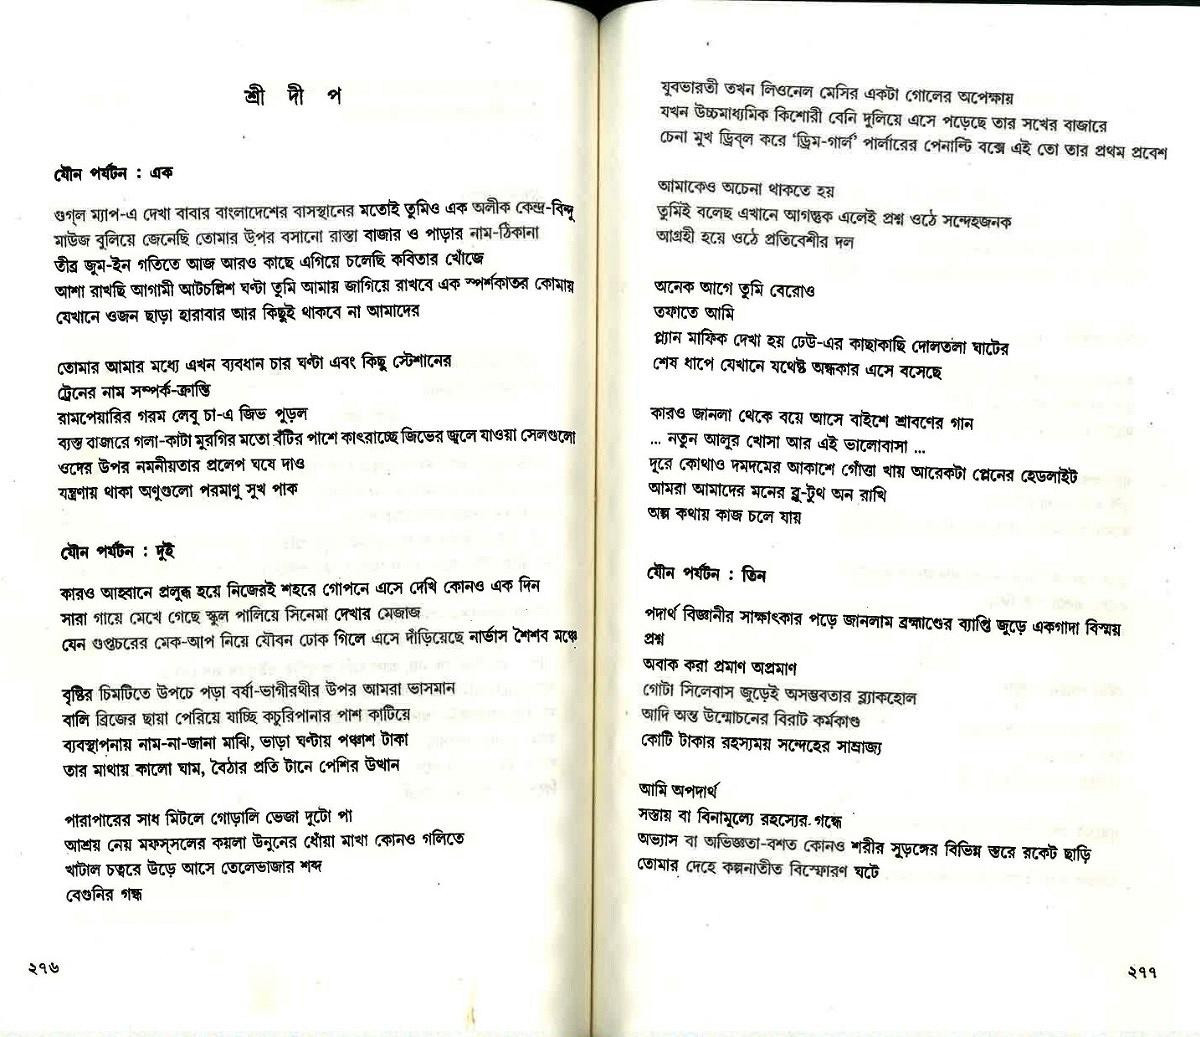 শ্রী দী প
যৌন পর্যটন : এক
গুগ্‌ল ম্যাপ-এ দেখা বাবার বাংলাদেশের বাসস্থানের মতোই তুমিও এক অলীক কেন্দ্র-বিন্দু
মাউজ বুলিয়ে জেনেছি তোমার উপর বসানো রাস্তা বাজার ও পাড়ার নাম-ঠিকানা
তীব্র জুম-ইন গতিতে আজ আরও কাছে এগিয়ে চলেছি কবিতার খোঁজে
আশা রাখছি আগামী আটচল্লিশ ঘণ্টা তুমি আমায় জাগিয়ে রাখবে এক স্পর্শকাতর কোমায়
যেখানে ওজন ছাড়া হারাবার আর কিছুই থাকবে না আমাদের
তোমার আমার মধ্যে এখন ব্যবধান চার ঘণ্টা এবং কিছু স্টেশানের
ট্রেনের নাম সম্পর্ক-ক্রান্তি
রামপেয়ারির গরম লেবু চা-এ জিভ পুড়ল
ব্যস্ত বাজারে গলা-কাটা মুরগির মতো বঁটির পাশে কাৎরাচ্ছে জিভের জ্বলে যাওয়া সেলগুলো
ওদের উপর নমনীয়তার প্রলেপ ঘষে দাও
যন্ত্রণায় থাকা অণুগুলো পরমাণু সুখ পাক
যৌন পর্যটন : দুই
কারও আহ্বানে প্রলুব্ধ হয়ে নিজেরই শহরে গোপনে এসে দেখি কোনও এক দিন
সারা গায়ে মেখে গেছে স্কুল পালিয়ে সিনেমা দেখার মেজাজ
যেন গুপ্তচরের মেক-আপ নিয়ে যৌবন ঢোক গিলে এসে দাঁড়িয়েছে নার্ভাস শৈশব মঞ্চে
বৃষ্টির চিমটিতে উপচে পড়া বর্ষা-ভাগীরথীর উপর আমরা ভাসমান
বালি ব্রিজের ছায়া পেরিয়ে যাচ্ছি কচুরিপানার পাশ কাটিয়ে
ব্যবস্থাপনায় নাম-না-জানা মাঝি, ভাড়া ঘণ্টায় পঞ্চাশ টাকা
তার মাথায় কালো ঘাম, বৈঠার প্রতি টানে পেশির উত্থান
পারাপারের সাধ মিটলে গোড়ালি ভেজা দুটো পা
আশ্রয় নেয় মফস্সলের কয়লা উনুনের ধোঁয়া মাখা কোনও গলিতে
খাটাল চত্বরে উড়ে আসে তেলেভাজার শব্দ
বেগুনির গন্ধ
২৭৬
যুবভারতী তখন লিওনেল মেসির একটা গোলের অপেক্ষায়
যখন উচ্চমাধ্যমিক কিশোরী বেনি দুলিয়ে এসে পড়েছে তার সখের বাজারে
চেনা মুখ ড্রিব্‌ল করে ‘ড্রিম-গার্ল’ পার্লারের পেনাল্টি বক্সে এই তো তার প্রথম প্রবেশ
আমাকেও অচেনা থাকতে হয়
তুমিই বলেছ এখানে আগন্তুক এলেই প্রশ্ন ওঠে সন্দেহজনক
আগ্রহী হয়ে ওঠে প্রতিবেশীর দল
অনেক আগে তুমি বেরোও
তফাতে আমি
প্ল্যান মাফিক দেখা হয় ঢেউ-এর কাছাকাছি দোলতলা ঘাটের
শেষ ধাপে যেখানে যথেষ্ট অন্ধকার এসে বসেছে
কারও জানলা থেকে বয়ে আসে বাইশে শ্রাবণের গান
... নতুন আলুর খোসা আর এই ভালোবাসা ...
দূরে কোথাও দমদমের আকাশে গোঁত্তা খায় আরেকটা প্লেনের হেডলাইট
আমরা আমাদের মনের ব্লু-টুথ অন রাখি
অল্প কথায় কাজ চলে যায়
যৌন পর্যটন : তিন
পদার্থ বিজ্ঞানীর সাক্ষাৎকার পড়ে জানলাম ব্রহ্মাণ্ডের ব্যাপ্তি জুড়ে একগাদা বিস্ময়
প্রশ্ন
অবাক করা প্রমাণ অপ্রমাণ
গোটা সিলেবাস জুড়েই অসম্ভবতার ব্ল্যাকহোল
আদি অন্ত উন্মোচনের বিরাট কর্মকাণ্ড
কোটি টাকার রহস্যময় সন্দেহের সাম্রাজ্য
আমি অপদার্থ
সস্তায় বা বিনামূল্যে রহস্যের গন্ধে
অভ্যাস বা অভিজ্ঞতা-বশত কোনও শরীর সুড়ঙ্গের বিভিন্ন স্তরে রকেট ছাড়ি
তোমার দেহে কল্পনাতীত বিস্ফোরণ ঘটে
২৭৭